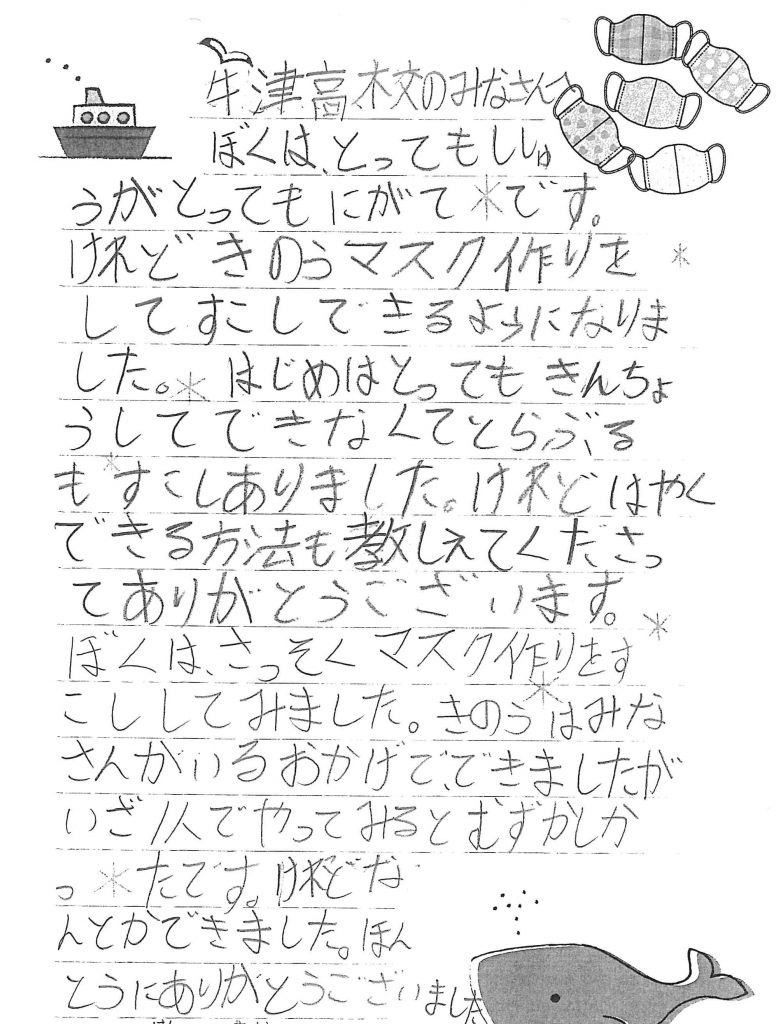 牛津高校のみなさんへ
ぼくは、とってもししゅ
うがとってもにがてです。
けれどきのうマスク作りを
してすこしできるようになりま
した。はじめはとってもきんちょ
うしてできなくてとらぶる
もすこしありました。けれどはやく
できる方法も教しえてくださっ
てありがとうございます。
ぼくは、さっそくマスク作りをす
こししてみました。きのうはみな
さんがいるおかげで、できましたが
いざ1人でやってみるとむずかしか
ったです。けれどな
んとかできました。ほん
とうにありがとうございました